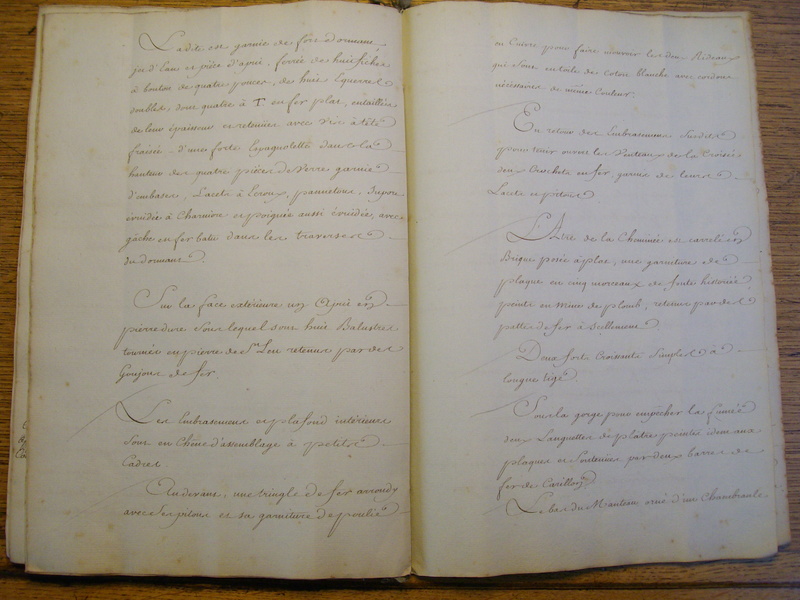 Ladite est garnie de fort dormant,
jet d'Eau et pièce d'apui, ferrée de huit fiches
à bouton de quatre pouces, de huit Equerres
doubles, dont quatre à T en fer plat, entaillées
de leur épaisseur et retenues avec Vis à tête
fraisée, d'une forte Espagnolette dans la
hauteur des quatre pièces de Verre garnie
d'embases, Lacets à Ecroux, pannetons, Suport
évuidée à Charniere et poignée aussi évuidée, avec
gâche en fer batu dans les traverses
du dormant.
Sur la face extérieure un Apui en
pierre dure sous lequel sont huit Balustres
tournés en pierre de St Leu retenus par des
Goujons de fer.
Les Embrasemens et plafond intérieurs
sont en Chêne d'assemblage à petits
Cadres
Au devant, une tringle de fer arrondy
avec ses pitons et sa garniture de poulies
en Cuivre pour faire mouvoir les deux Rideaux
qui sont en toile de Coton blanche avec cordons
nécessaires de même Couleur.
En retour des Embrasemens susdits
pour tenir ouvert les Venteaux de la Croisée
deux Crochets en fer garnis de leurs
Lacets et pitons
L'Atre de la Cheminée est carrelé en
Brique posée à plat, une garniture de
plaque en cinq morceaux de fonte historiée
peinte en Mine de plomb, retenue par des
pattes de fer à Scellement
Deux forts Croissants Simples à
longue tige
Sous la gorge pour empêcher la fumée
deux Languettes de plâtre peintes idem aux
plaques et Soutenues par deux barres de
fer de Carillon
Le bas du Manteau orné d'un Chambranle